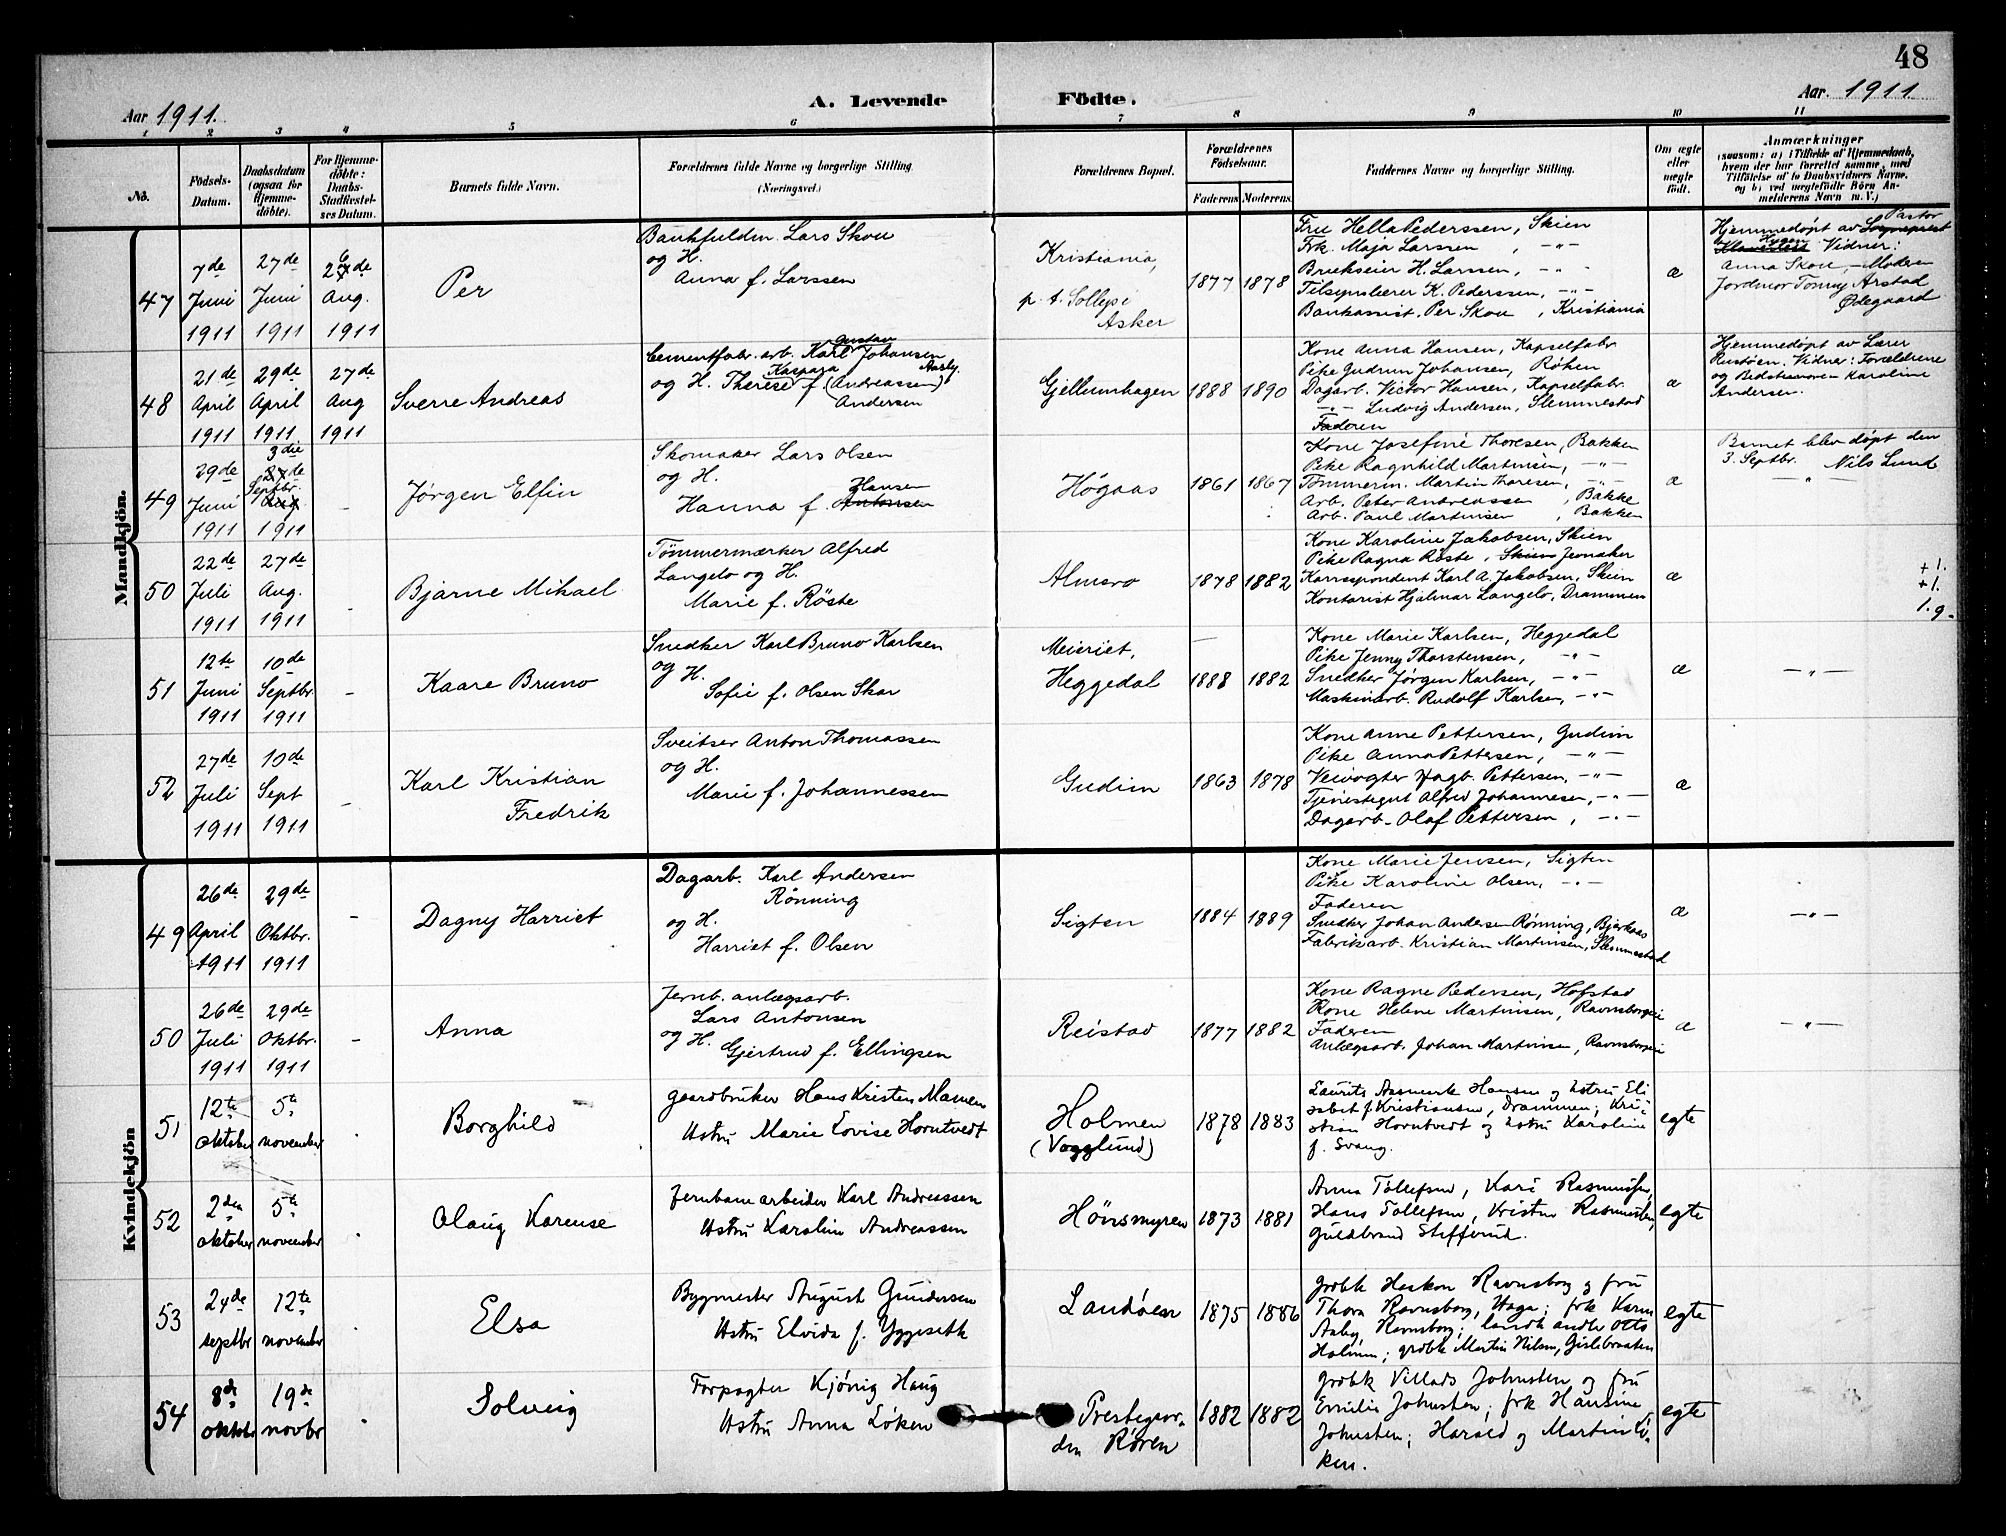 48
Aar 1911.
A. Levende
Födte.
Aar. 1911
1 2 3 4 5 6 7 8 9 10 11
No.
Födsels-
Datum.
Daabsdatum
(ogsaa for
Hjemme-
döbte).
For Hjemme-
döbte:
Daabs-
Stadfæstel-
ses Datum.
Barnets fulde Navn.
Forældrenes fulde Navne og borgerlige Stilling.
(Næringsvei.)
Forældrenes Bopæl.
Forældrenes
Födselsaar.
Faderens
Moderens
Faddernes Navne og borgerlige Stilling.
Om ægte
eller
uægte
födt.
Anmærkninger
(saasom: a) i Tilfælde af Hjemmedaab,
hvem der har forrettet samme, med
Tilföielse af to Daabsvidners Navne,
og b) ved uægtefödte Börn An-
melderens Navn m. V.)
Mandkjön.
47
7de
Juni
1911
27de
Juni
1911
26de
Aug.
1911
Per
Bankfuldm. Lars Skou
og H.
Anna f. Larssen
Kristiania,
p. t. Solløsi
Asker
1877
1878
Fru Hella Pederssen, Skien
Frk. Maja Larssen, -"-
Brukseier H. Larssen, -"-
Tilsynslærer K. Pederssen, -"-
Bankassist. Per Skou, Kristiania
æ
Hjemmedøpt av Sogneprest Pastor
Hygen Vidner:
Anna Skou, Moderen
Jordmor Tonny Arstad
Ødegaard
48
21de
April
1911
29de
April
1911
27de
Aug
1911
Sverre Andreas
Gustav
Cementfabr. arb. Karl Johansen
Kaspara Aasby.
og H. Therese f. (Andreassen)
Andersen
Gjellumhagen
1888
1890
Kone Anna Hansen, Kapselfabr.
Pike Gudrun Johansen, Røken
Dagarb. Victor Hansen, Kapselfabr.
-"- Ludvig Andersen, Slemmestad
Faderen
æ
Hjemmedøpt av Lærer
Rustøen. Vidner: Forældrene
og Bedstemoren Karoline
Andersen.
49
29de
Juni
1911
3die
27de
Septbr.
Aug.
1911
-
Jørgen Elfin
Skomaker Lars Olsen
og H.
Hansen
Hanna f. Antonsen
Høgaas
1861
1867
Kone Josefine Thoresen, Bakken
Pike Ragnhild Martinsen, -"-
Tømmerm. Martin Thoresen, -"-
Arb. Peter Andreassen, Bakke
Arb. Paul Martinsen, Bakken
æ
Barnet blev døpt den
3. Septbr. Nils Lund
-"-
50
22de
Juli
1911
27de
Aug.
1911
-
Bjarne Mikael
Tømmermærker Alfred
Langelo og H.
Marie f. Røste
Almsro
1878
1882
Kone Karoline Jakobsen, Skien
Pike Ragna Røste, Skien Jevnaker
Korrespondent Karl A. Jakobsen, Skien
Kontorist Hjalmar Langelo, Drammen
æ
+1.
+1.
1. g.
51
12te
Juni
1911
10de
Septbr.
1911
-
Kaare Bruno
Snedker Karl Bruno Karlsen
og H.
Sofie f. Olsen Skar
Meieriet,
Heggedal
1888
1882
Kone Marie Karlsen, Heggedal
Pike Jenny Thorstensen, -"-
Snedker Jørgen Karlsen, -"-
Maskinarb. Rudolf Karlsen, -"-
æ
-"-
52
27de
Juli
1911
10de
Sept
1911
-
Karl Kristian
Fredrik
Sveitser Anton Thomassen
og H.
Marie f. Johannessen
Gudim
1863
1878
Kone Anne Pettersen, Gudim
Pike Anna Pettersen, -"-
Veivogter Hagb. Pettersen, -"-
Tjenestegut Alfred Johannesen, -"-
Dagarb. Olaf Pettersen, -"-
æ
Kvindekjön
49
26de
April
1911
29de
Oktbr.
1911
-
Dagny Harriet
Dagarb. Karl Andersen
Rønning
og H.
Harriet f. Olsen
Sigten
1884
1889
Kone Marie Jensen, Sigten
Pike Karoline Olsen, -"-
Faderen
Snedker Johan Andersen Rønning, Bjerkaas
Fabrikarb. Kristian Martinsen, Slemmestad
æ
-"-
50
26de
Juli
1911
29de
Oktbr.
1911
-
Anna
Jernb. anlægsarb.
Lars Antonsen
og H.
Gjertrud f. Ellingsen
Reistad
1877
1882
Kone Ragne Pedersen, Hofstad
Kone Helene Martinsen, Ravnsborgeie
Faderen
Anlægsarb. Johan Martinsen, Ravnsborgeie
æ
-"-
51
12te
oktober
5te
november
Borghild
gaardbruker Hans Kristen Mamen
Ustru Marie Lovise Horntvedt
Holmen
(Vogglund)
1878
1883
Laurits Aasmente Hansen og hstru Eli
sabet f. Kristiansen, Drammen; Kri
stian Horntvedt og hstru Karoline
f. Svang.
egte
52
2den
oktober
5te
november
Olaug Karense
Jernbanearbeider Karl Andreassen
Ustru Karoline Andreassen
Hönsmyren
1873
1881
Anna Tollefsen, Kari Rasmussen,
Hans Tollefsen, Kristen Rasmussen,
Guldbrand Stefferud.
egte
53
24de
septbr
12te
november
Elsa
Bygmester August Gundersen
Ustru Elvida f. Yggeseth
Landöen
1875
1886
grdbk Haakon Ravnsborg og fru
Thora Ravnsborg, Haga; frk Karen
Aaby, Ravnsborg; landhandler Otto
Holmen; grdbk Martin Nilsen, Gislebraaten
egte
54
8de
oktbr
19de
novbr
Solveig
Forpagter Kjönig Haug
Ustru Anna Löken
Prestegaar-
den Rören
1882
1882
grdbk Villads Johnsten og fru
Emilie Johnsten; frk Hansine
Johnsten; Harald og Martin Lö-
ken.
egte